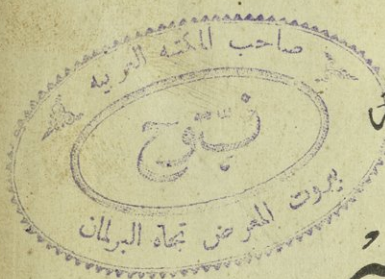 صاحب المكتبه العربيه
فتوح
بيروت المعرض تجاه البرلمان